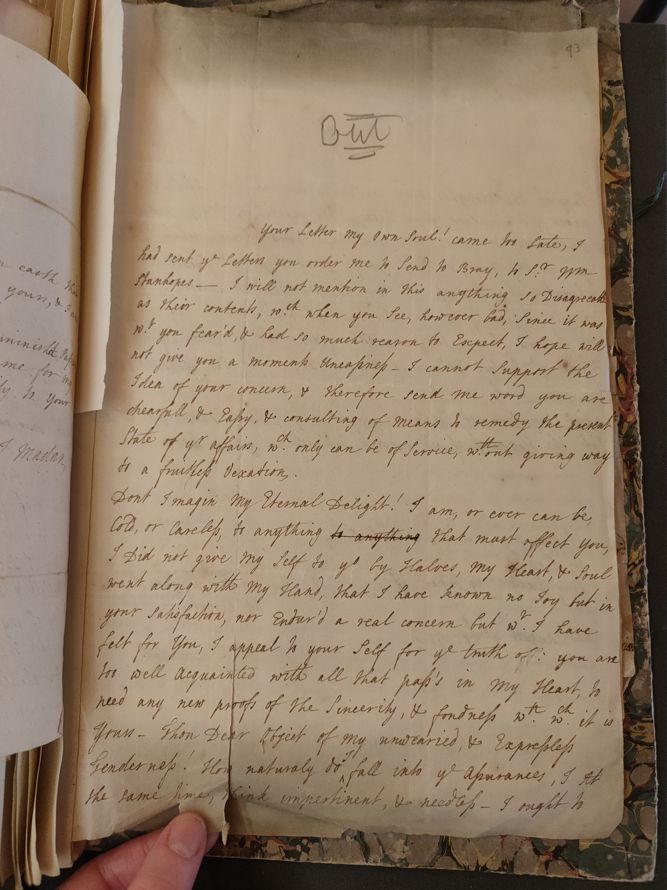 93
Out
Your Letter My Own Soul! came too Late, I
had sent yᵉ Letters you order me to Send to Bray, to Sʳ Wm
Stanhopes — I will not mention in this anything so Disagreeable
as their contents, wᶜʰ when you See, however bad, Since it was
wᵗ you fear'd, & had so much reason to Expect, I hope will
not give you a moments Uneasiness — I cannot Support the
Idea of your concern, & therefore send me word you are
chearfull, & Easy, & consulting of means to remedy the present
State of yʳ affairs, wᶜʰ only can be of Service, wᵗʰout giving way
to a fruitless Vexation,.
Dont Imagin My Eternal Delight! I am, or ever can be,
Cold, or Careless, to anything to anything that must affect You,
I Did not give My Self to yᵒ by Halves, My Heart, & Soul
went along with My Hand, that I have known no Joy but in
your Satisfaction, nor Endur'd a real concern but wᵗ I have
felt for You, I appeal to your Self for yᵉ truth of: you are
too well Acquainted with all that pass's in My Heart, to
need any new proofs of the Sincerity, & fondness wᵗʰ wᶜʰ it is
Yours — Thou Dear Object of My unwearied, & Expressless
Tenderness! How naturaly do I fall into yᵉ Assurances, I At
the same time, think impertinent, & needless — I ought to
earth
yours, &
me for my
to your
I Madam,